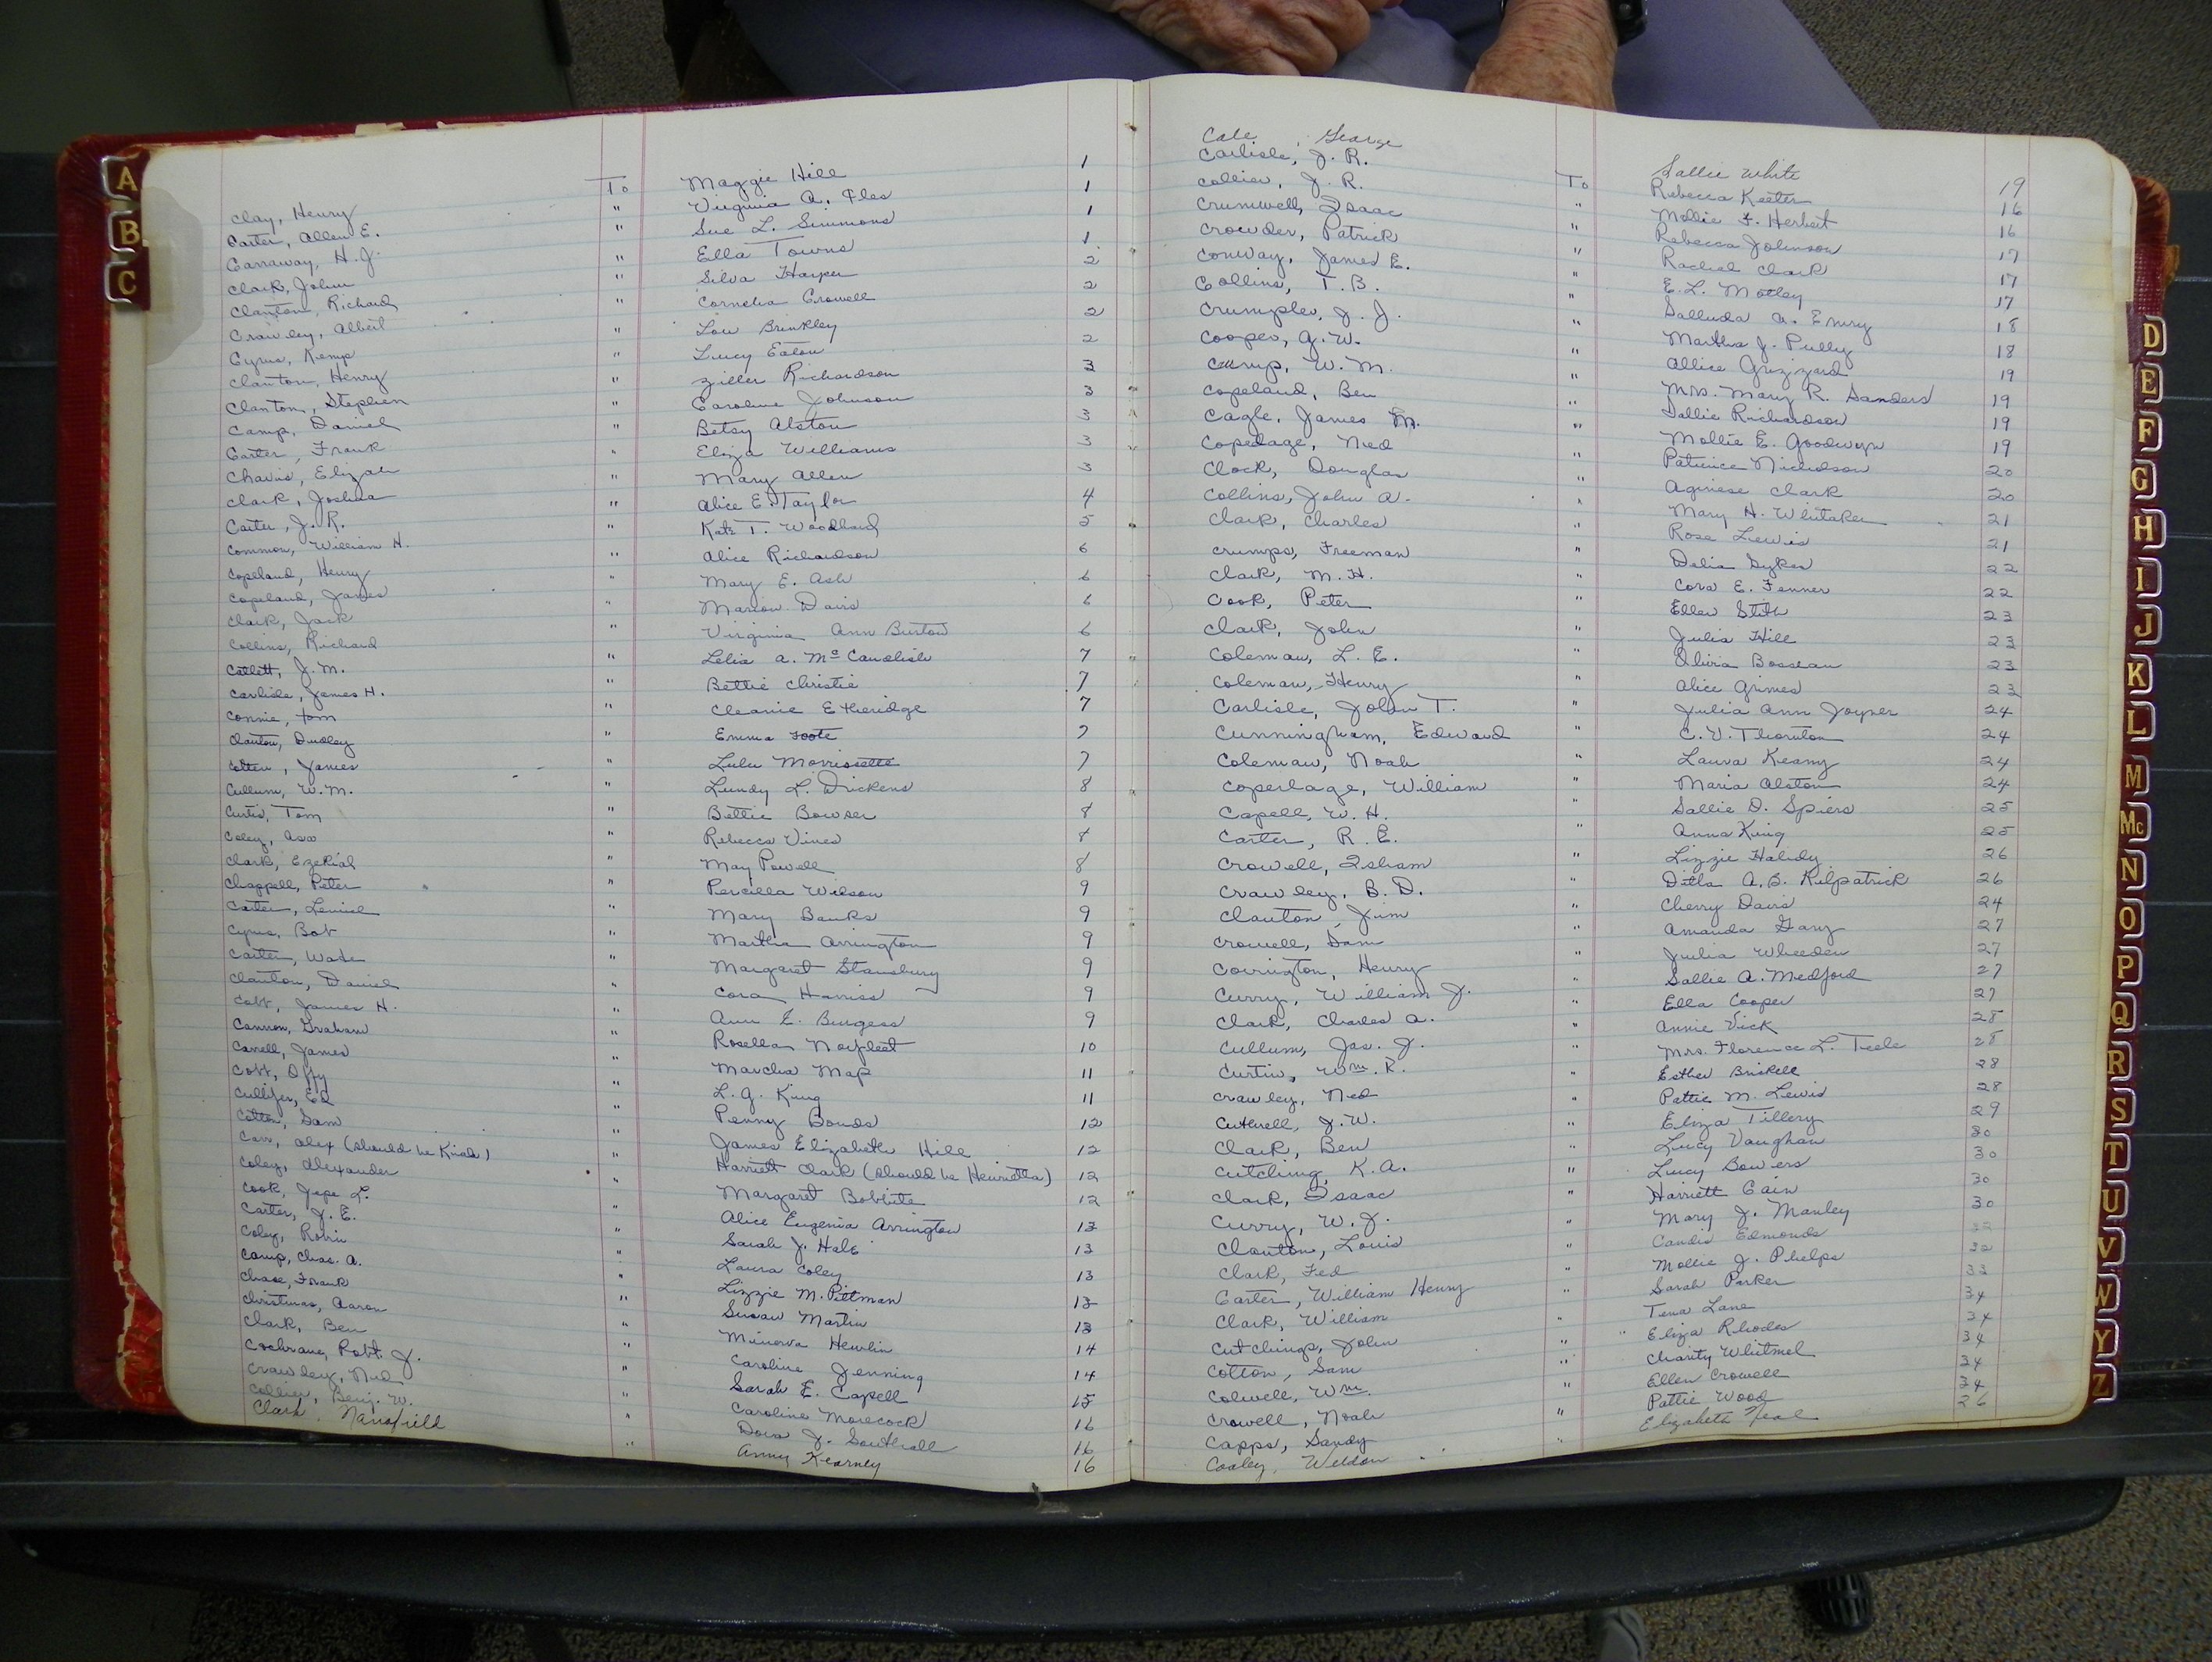 A
B
C
Clay, Henry To Maggie Hill 1
Carter, Allen E. " Virginia A. Iles 1
Carraway, H. J. " Sue L. Simmons 1
Clark, John " Ella Towns 1
Clanton, Richard " Silva Harper 2
Crawley, Albert " Cornelia Crowell 2
Cyrus, Kemp " Lou Brinkley 2
Clanton, Henry " Lucy Eaton 2
Clanton, Stephen " Ziller Richardson 3
Camp, Daniel " Caroline Johnson 3
Carter, Frank " Betsy Alston 3
Chavis, Elizah " Eliza Williams 3
Clark, Joshua " Mary Allen 3
Carter, J. R. " Alice E. Taylor 4
Common, William H. " Kate T. Woodard 5
Copeland, Henry " Alice Richardson 6
Copeland, James " Mary E. Ash 6
Clark, Jack " Marion Davis 6
Collins, Richard " Virginia Ann Burton 6
Catlett, J. M. " Lelia A. McCandlish 7
Carlisle, James H. " Bettie Christie 7
Connie, Tom " Cleanie Etheridge 7
Clanton, Dudley " Emma Foote 7
Cotten, James " Lulu Morrissette 7
Cullum, W. M. " Lundy L. Dickens 8
Curtis, Tom " Bettie Bowser 8
Coley, Asa " Rebecca Vines 8
Clark, Ezekial " May Powell 8
Chappell, Peter " Percilla Wilson 9
Carter, Lemuel " Mary Banks 9
Cyrus, Bob " Martha Arrington 9
Carter, Wade " Margaret Stansbury 9
Clanton, Daniel " Cora Harriss 9
Cobb, James H. " Ann E. Burgess 9
Cannon, Graham " Rosella Norfleet 10
Carrell, James " Marcha Map 11
Cobb, Offy " L. G. King 11
Cullifer, Ed " Penny Bonds 12
Cotten, Sam " James Elizabeth Hill 12
Carr, Alex (should be ) " Harriett Clark (should be Henrietta) 12
Coley, Alexander " Margaret Bobbitte 12
Cook, L. " Alice Eugenia Arrington 13
Carter, J. E. " Sarah J. Hale 13
Coley, Robin " Laura Coley 13
Camp, Chas. A. " Lizzie M. Pittman 13
Chase, Frank " Susan Martin 13
Christmas, Aaron " Minerva Hewlin 14
Clark, Ben " Caroline Jenning 14
Cochrane, Robt. J. " Sarah E. Capell 15
Crawley, Ned " Caroline Morecock 16
Collier, Benj. W. " Dora J. Southall 16
Clark, Mansfield " Anny Kearney 16
Cale, George To Sallie White 19
Carlisle, J. R. " Rebecca Keeter 16
Collier, J. R. " Mollie F. Herbert 16
Crumwell, Isaac " Rebecca Johnson 17
Crowder, Patrick " Rachel Clark 17
Conway, James E. " E. L. Motley 17
Collins, T. B. " Salluda A. Emry 18
Crumpler, J. J. " Martha J. Pully 18
Cooper, G. W. " Allice Grizzard 19
Camp, W. M. " Mrs. Mary R. Sanders 19
Copeland, Ben " Sallie Richardson 19
Cagle, James M. " Mollie E. Goodwyn 19
Copedage, Ned " Patience Nicholson 20
Clock, Douglas " Aginese Clark 20
Collins, John A. " Mary H. Whitaker 21
Clark, Charles " Rosa Lewis 21
Crumps, Freeman " Delia Sykes 22
Clark, M. H. " Cora E. Fenner 22
Cook, Peter " Ellen Stith 23
Clark, John " Julia Hill 23
Coleman, L. E. " Olivia Bosseau 23
Coleman, Henry " Alice Grimes 23
Carlisle, John T. " Julia Ann Joyner 24
Cunningham, Edward " C. V. Thornton 24
Coleman, Noah " Laura Keamy 24
Coperlage, William " Maria Alston 24
Capell, W. H. " Sallie D. Spiers 25
Carter, R. E. " Anna King 25
Crowell, Isham " Lizzie 26
Crawley, B. D. " A. B. Kilpatrick 26
Clanton, Jim " Cherry Davis 24
Crowell, Sam " Amanda Gary 27
Covington, Henry " Julia Wheeden 27
Curry, William J. " Sallie A. Medford 27
Clark, Charles A. " Ella Cooper 27
Cullum, Jas. J. " Annie Vick 28
Curtis, Wm. R. " Mrs. Florence L. Teele 28
Crawley, Ned " Esther Briskell 28
Cuthrell, J. W. " Pattie M. Lewis 28
Clark, Ben " Eliza Tillery 29
Cutchins, K. A. " Lucy Vaughan 30
Clark, Isaac " Lucy Bowers 30
Curry, W. J. " Harriett Cain 30
Clanton, Louis " Mary J. Manley 30
Clark, Fed " Candis Edmonds 32
Carter, William Henry " Mollie J. Phelps 32
Clark, William " Sarah Parker 33
Cutchings, John " Tena Lane 34
Cotton, Sam " Eliza Rhodes 34
Colwell, Wm. " Charity Whitmel 34
Crowell, Noah " Ellen Crowell 34
Capps, Sandy " Pattie Wood 34
Cooley, Weldon " Elizabeth Neal 26
D
E
F
G
H
I
J
K
L
M
Mc
N
O
P
Q
R
S
T
U
V
W
Y
Z